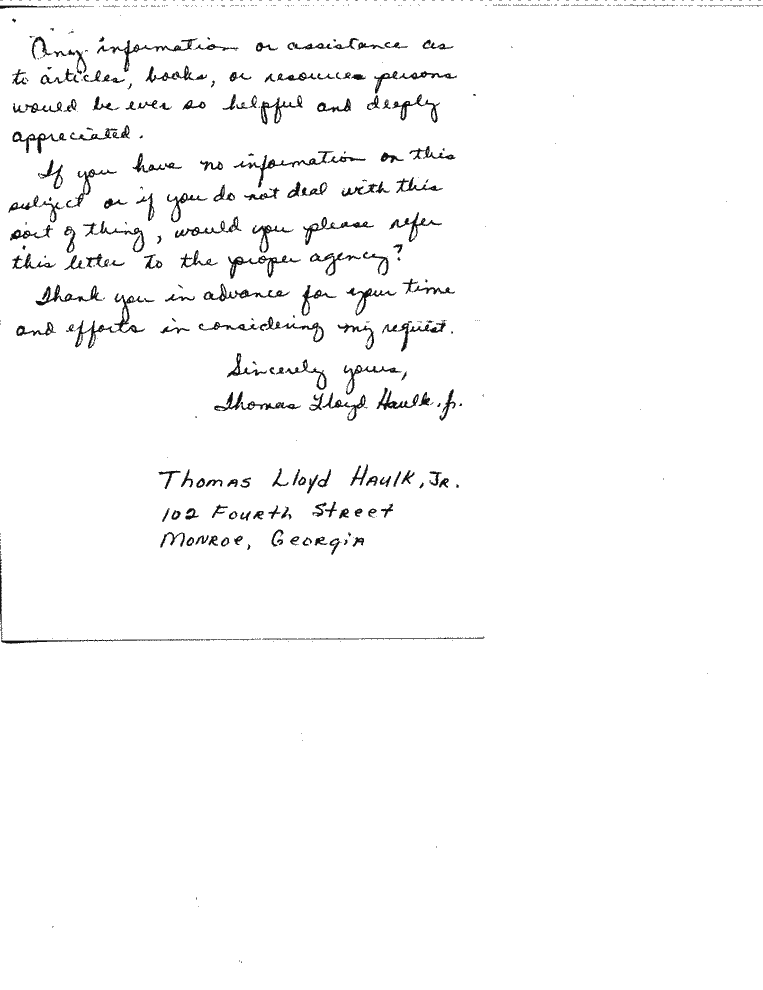 Any information or assistance as
to articles, books, or resources persons
would be ever so helpful and deeply
appreciated.
If you have no information on this
subject or if you do not deal with this
sort of thing, would you please refer
this letter to the proper agency?
Thank you in advance for your time
and efforts in considering my request.
Sincerely yours,
Thomas Lloyd Haulk, Jr.
Thomas Lloyd Haulk, Jr.
102 Fourth Street
Monroe, Georgia